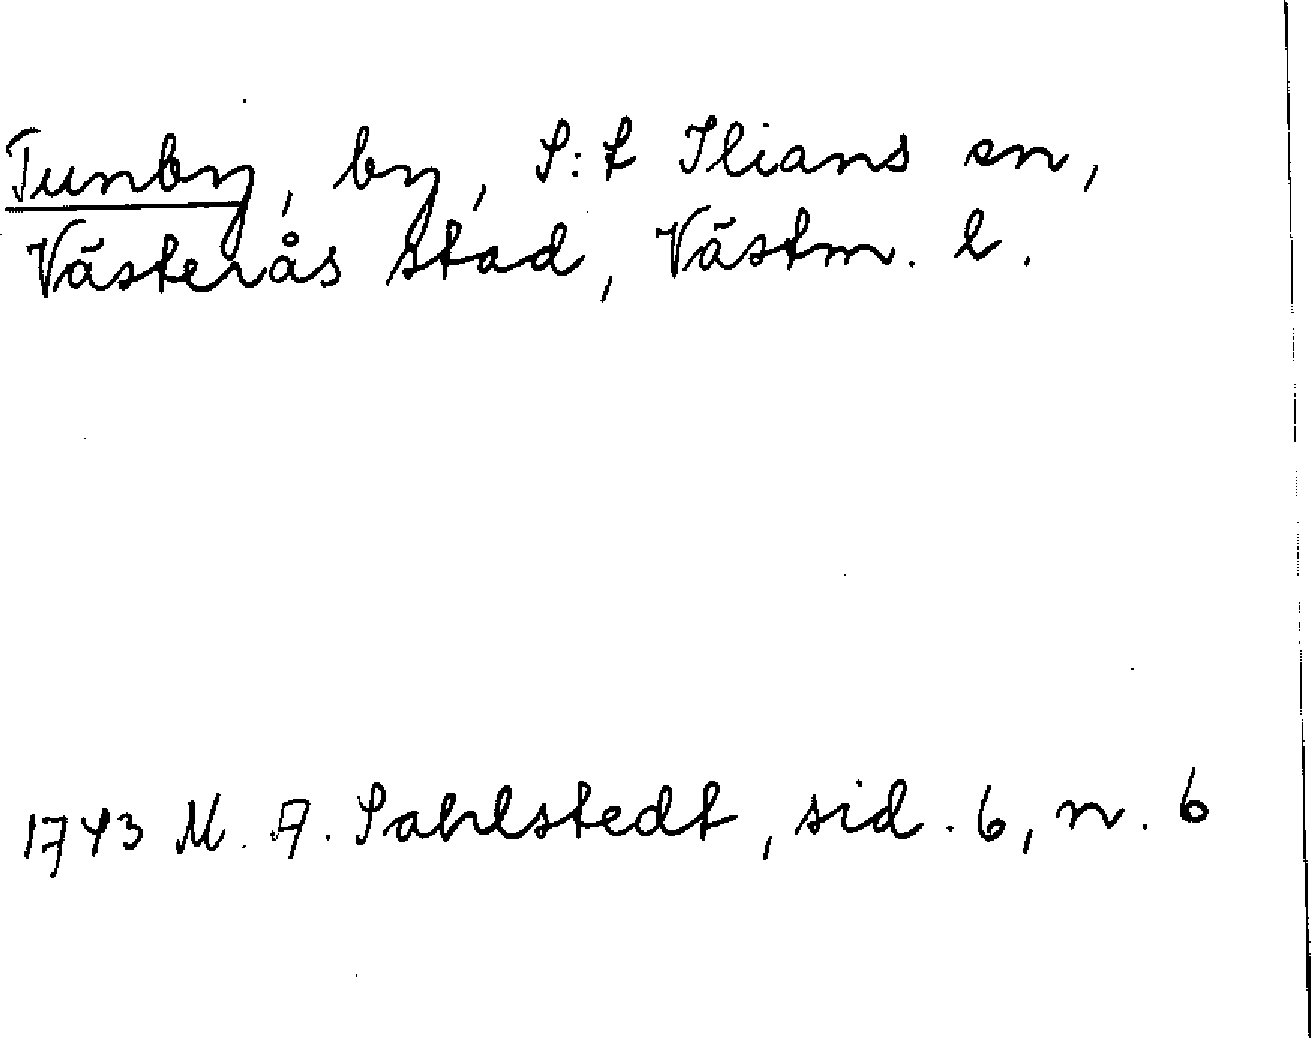 Tunby, by, S:t Ilians sn,
Västerås stad, Västm. l.
1743 M. A. Sahlstedt, sid. 6, n. 6